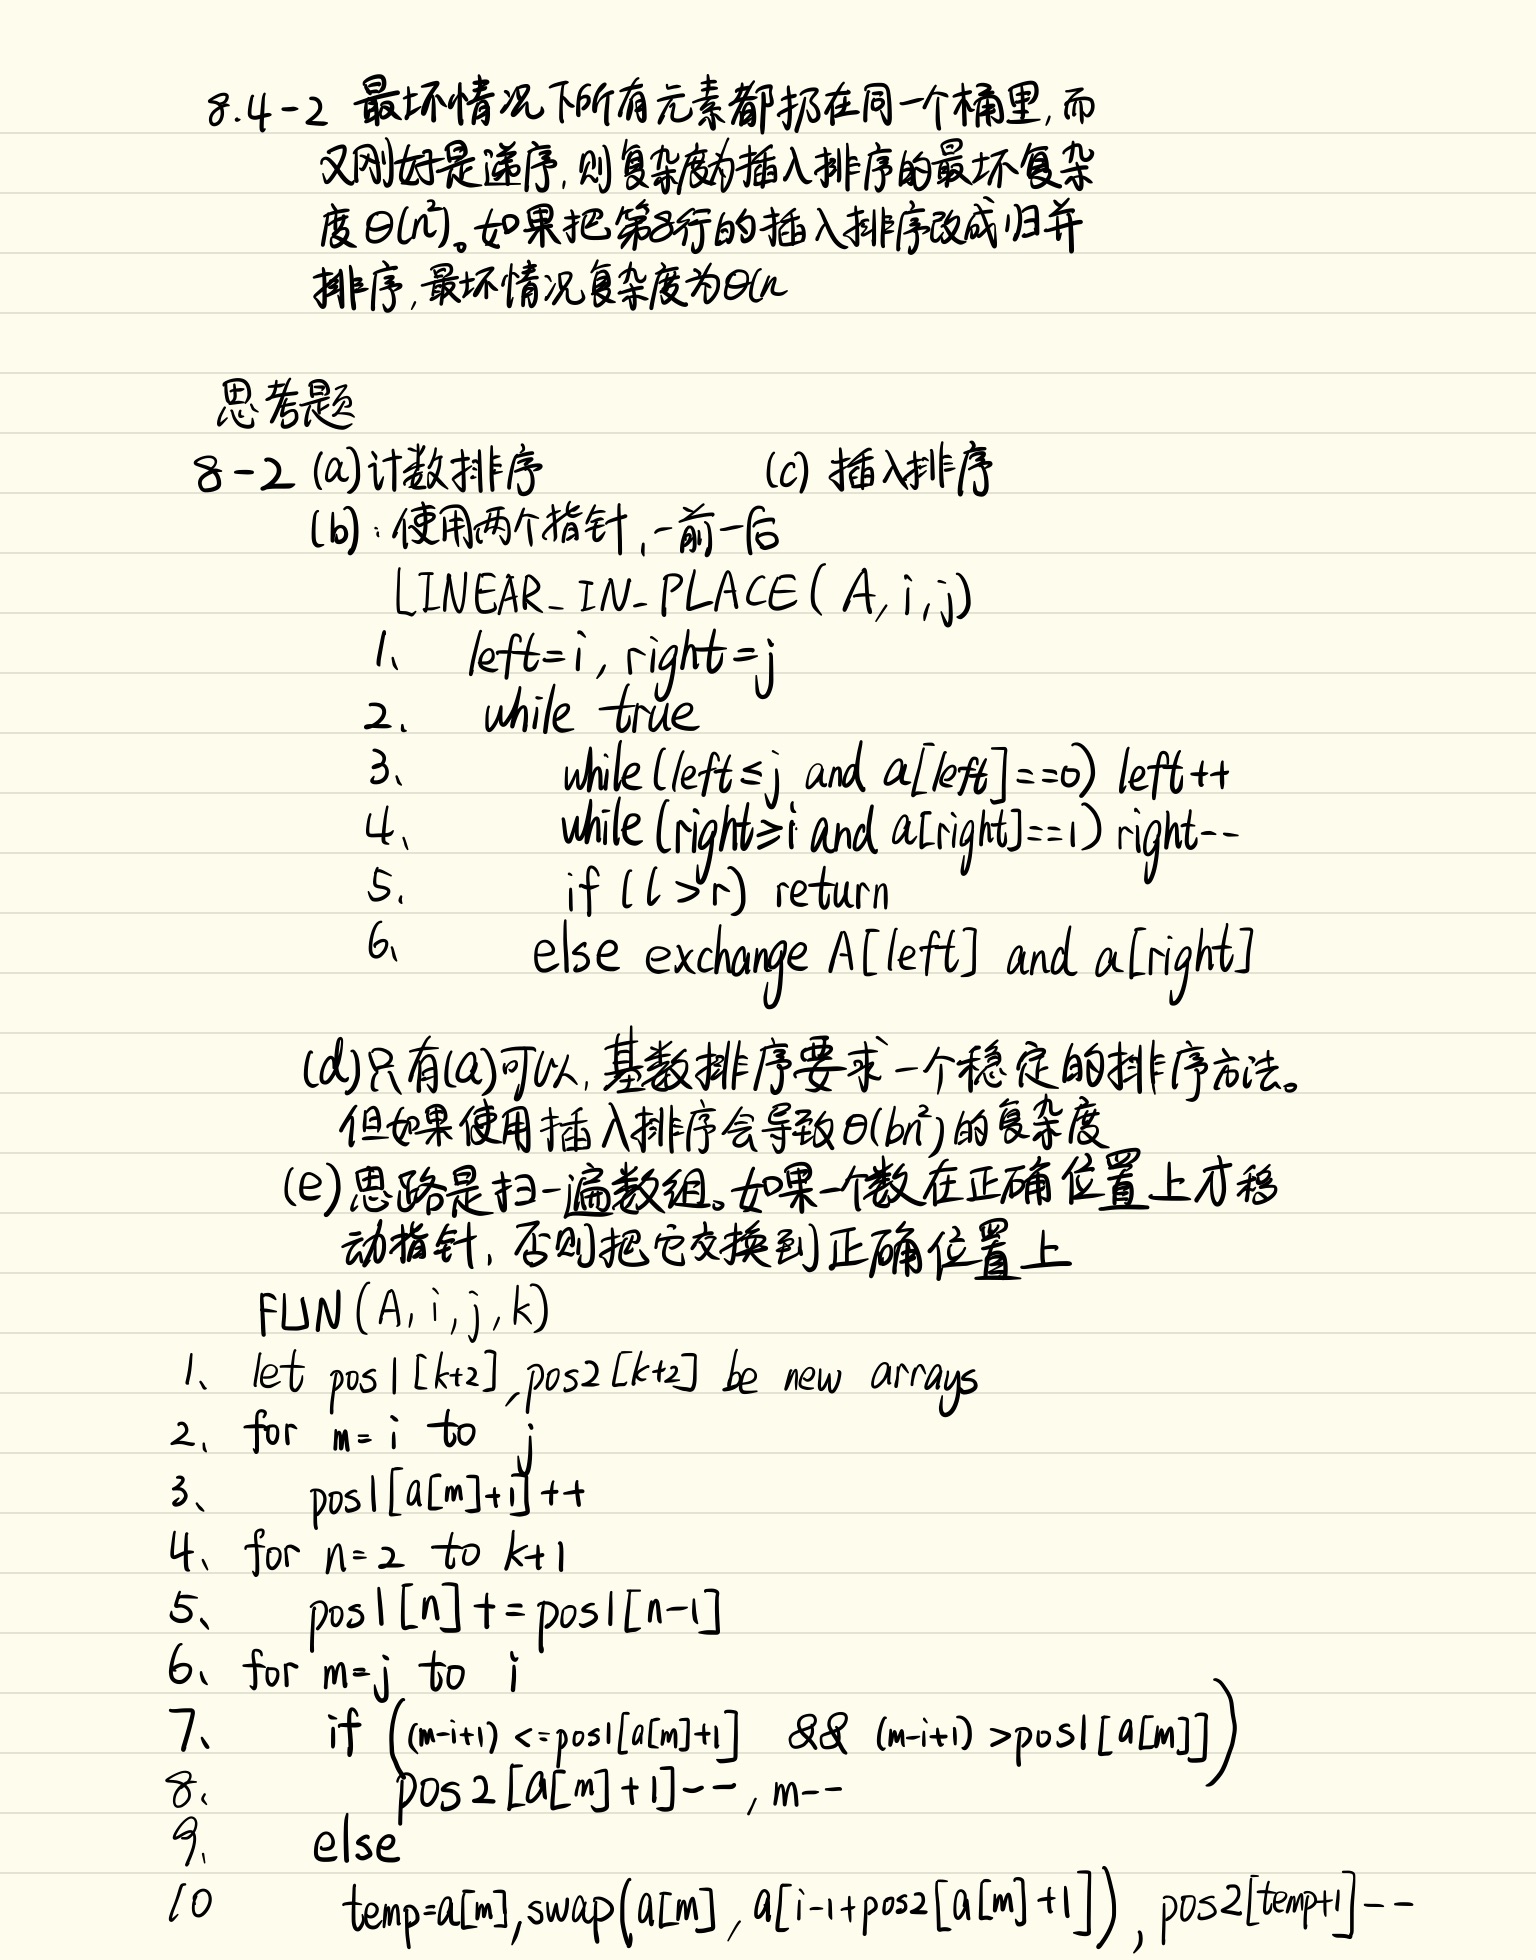 8.4-2 最坏情况下所有元素都扔在同一个桶里,而
又刚好是递序,则复杂度为插入排序的最坏复杂
度θ(n²)。如果把第8行的插入排序改成归并
排序,最坏情况复杂度为θ(n
思考题
8-2 (a)计数排序 (c) 插入排序
(b):使用两个指针,一前一后
LINEAR_IN_PLACE(A,i,j)
1、 left=i, right=j
2、 while true
3、 while(left≤j and a[left]==0) left++
4、 while(right≥i and a[right]==1) right--
5、 if (l>r) return
6、 else exchange A[left] and a[right]
(d)只有(a)可以,基数排序要求一个稳定的排序方法。
但如果使用插入排序会导致θ(bn²)的复杂度
(e)思路是扫一遍数组。如果一个数在正确位置上才移
动指针,否则把它交换到正确位置上
FUN(A,i,j,k)
1、 let pos1[k+2],pos2[k+2] be new arrays
2、 for m=i to j
3、 pos1[a[m]+1]++
4、 for n=2 to k+1
5、 pos1[n]+=pos1[n-1]
6、 for m=j to i
7、 if ((m-i+1)<=pos1[a[m]+1] && (m-i+1)>pos1[a[m]])
8、 pos2[a[m]+1]--, m--
9、 else
10 temp=a[m],swap(a[m], a[i-1+pos2[a[m]+1]]), pos2[temp+1]--